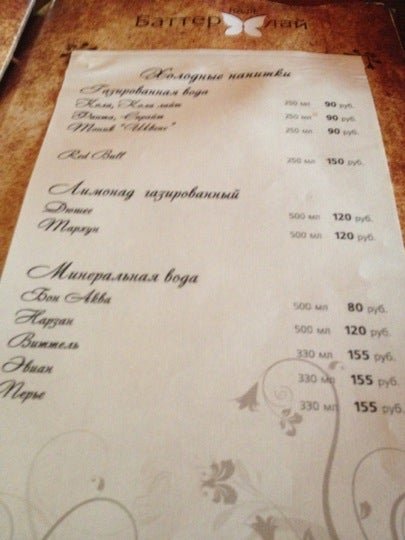 Баттер лай
Холодные напитки
Газированная вода
Кола, Кола лайт 250 мл 90 руб.
Фанта, Спрайт 250 мл 90 руб.
Тоник "Швепс" 250 мл 90 руб.
Red Bull 250 мл 150 руб.
Лимонад газированный
Дюшес 500 мл 120 руб.
Тархун 500 мл 120 руб.
Минеральная вода
Бон Аква 500 мл 80 руб.
Нарзан 500 мл 120 руб.
Виттель 330 мл 155 руб.
Эвиан 330 мл 155 руб.
Перье 330 мл 155 руб.